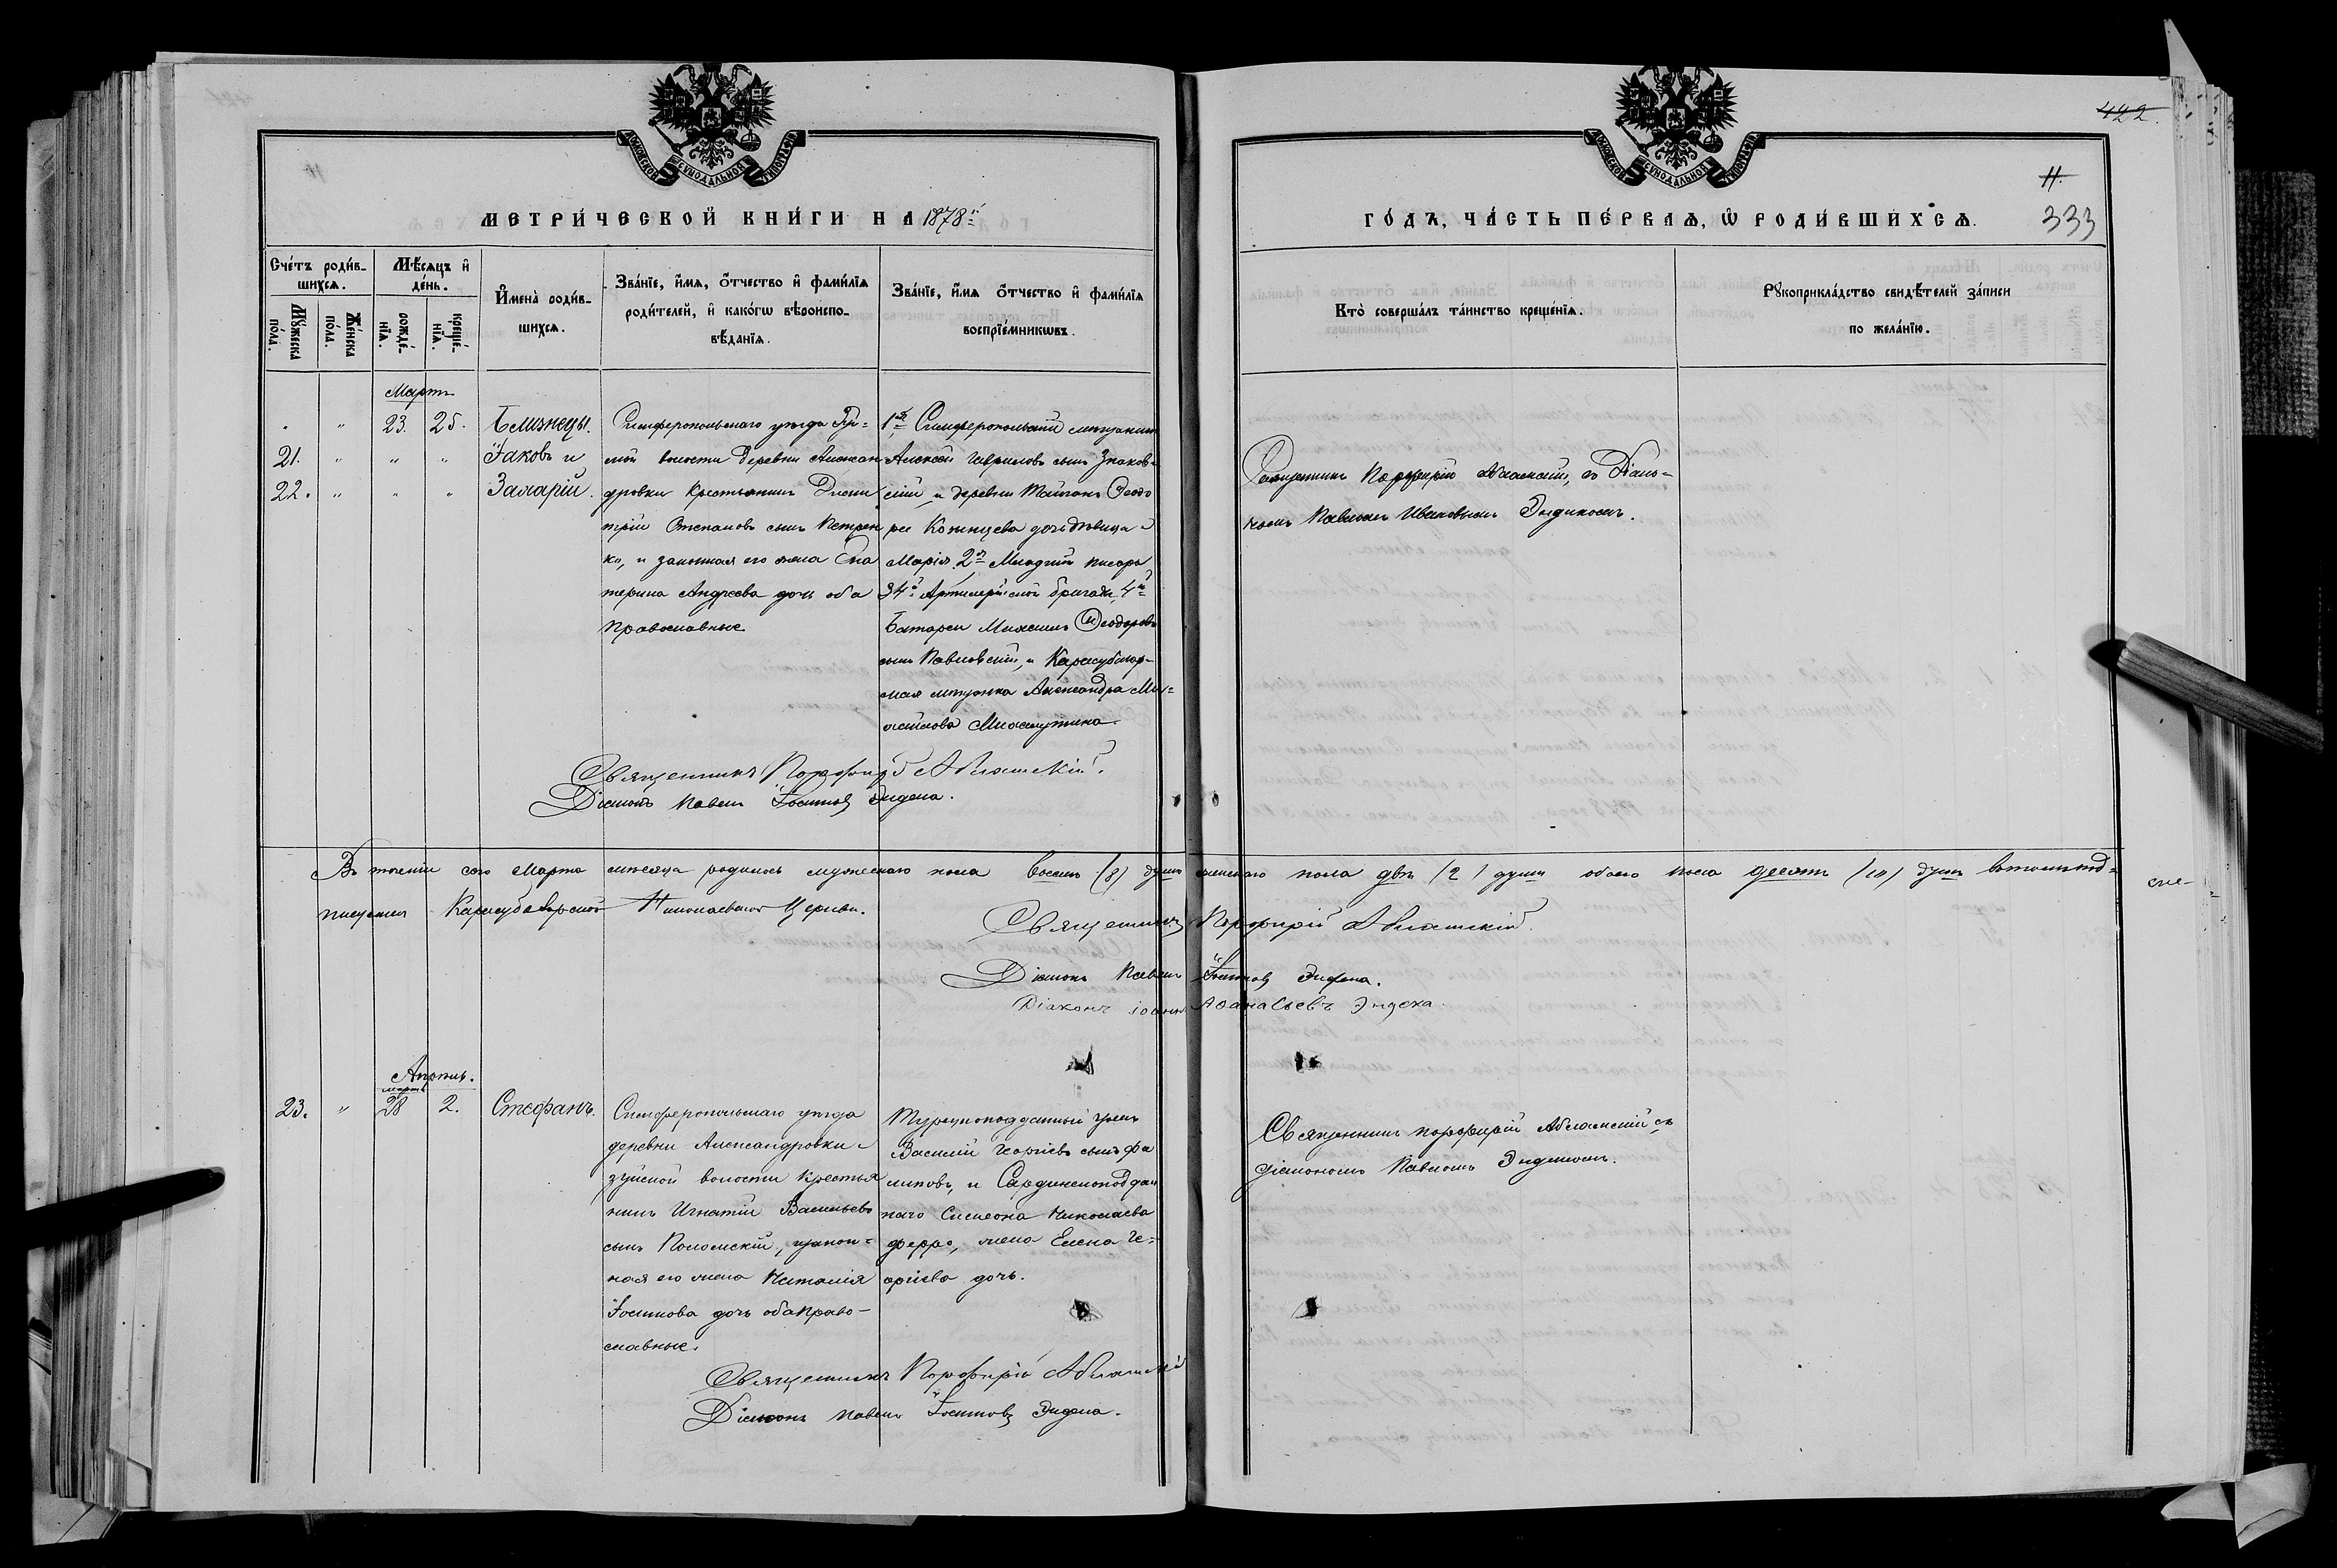 422.
11.
333
МЕТРИЧЕСКОЙ КНИГИ НА 1878й
ГОДЪ, ЧАСТЬ ПЕРВАЯ, Ѡ РОДИВШИХСЯ.
Счетъ родив-
шихся.
Мужеска
пола.
Женска
пола.
Мѣсяцъ и
день.
рожде-
нія.
креще-
нія.
Имена родив-
шихся.
Званіе, имя, отчество и фамилія
родителей, и какогѡ вѣроиспо-
вѣданія.
Званіе, имя отчество и фамилія
воспріемникѡвъ.
Кто совершалъ таинство крещенія.
Рукоприкладство свидѣтелей записи
по желанію.
Мартъ
23. 25. Близнецы.
21. Іаковъ и
22. Захарій.
Симферопольскаго уѣзда Зуй=
ской волости деревни Алексан
дровки крестьянинъ Дими
трій Степановъ сынъ Петрен
ко, и законная его жена Ека
терина Андреева дочь оба
православные
1й Симферопольскій мѣщанинъ
Алексѣй Гавриловъ сынъ
и деревни Ѳеодо
ра дочь дѣвица
Марія. 2й Младшій писарь
34й Артилерійской бригады, 4й
Батареи Михаилъ Ѳеодоровъ
сынъ Павловскій, и Карасубазар-
ская мѣщанка Александра Ми=
хайлова
Священникъ Порфирій Аблаmскій, съ Діако-
номъ Павломъ Ивановымъ Эндекомъ.
Священникъ Порфирій
Діаконъ Павелъ Іоанновъ Эндека.
Въ теченіи сего Марта мѣсяца родилось мужескаго пола восемь (8) душъ женскаго пола двѣ (2) души обоего пола десять (10) душъ въ томъ под-
писуемся Карасубазарской Николаевской Церкви.
Священникъ Порфирій
Діаконъ Павелъ Іоанновъ Эндека.
Діаконъ Іоаннъ Аѳанасьевъ Эндека
Апрѣль.
мартъ
23. 28 2. Стефанъ.
Симферопольскаго уѣзда
деревни Александровки
зуйской волости крестья
нинъ Игнатій Васильевъ
сынъ, и закон=
ная его жена Наталія
Іоаннова дочь оба право-
славные.
Турецкоподданный грекъ
Василій Георгіевъ сынъ Фа
ликовъ, и Сардинскоподдан
наго Симеона Николаева
Ферро, жена Елена Ге=
оргіева дочь.
Священникъ Порфирій съ
діакономъ Павломъ Эндекомъ.
Священникъ Порфирій
Діаконъ Павелъ Іоанновъ Эндека.